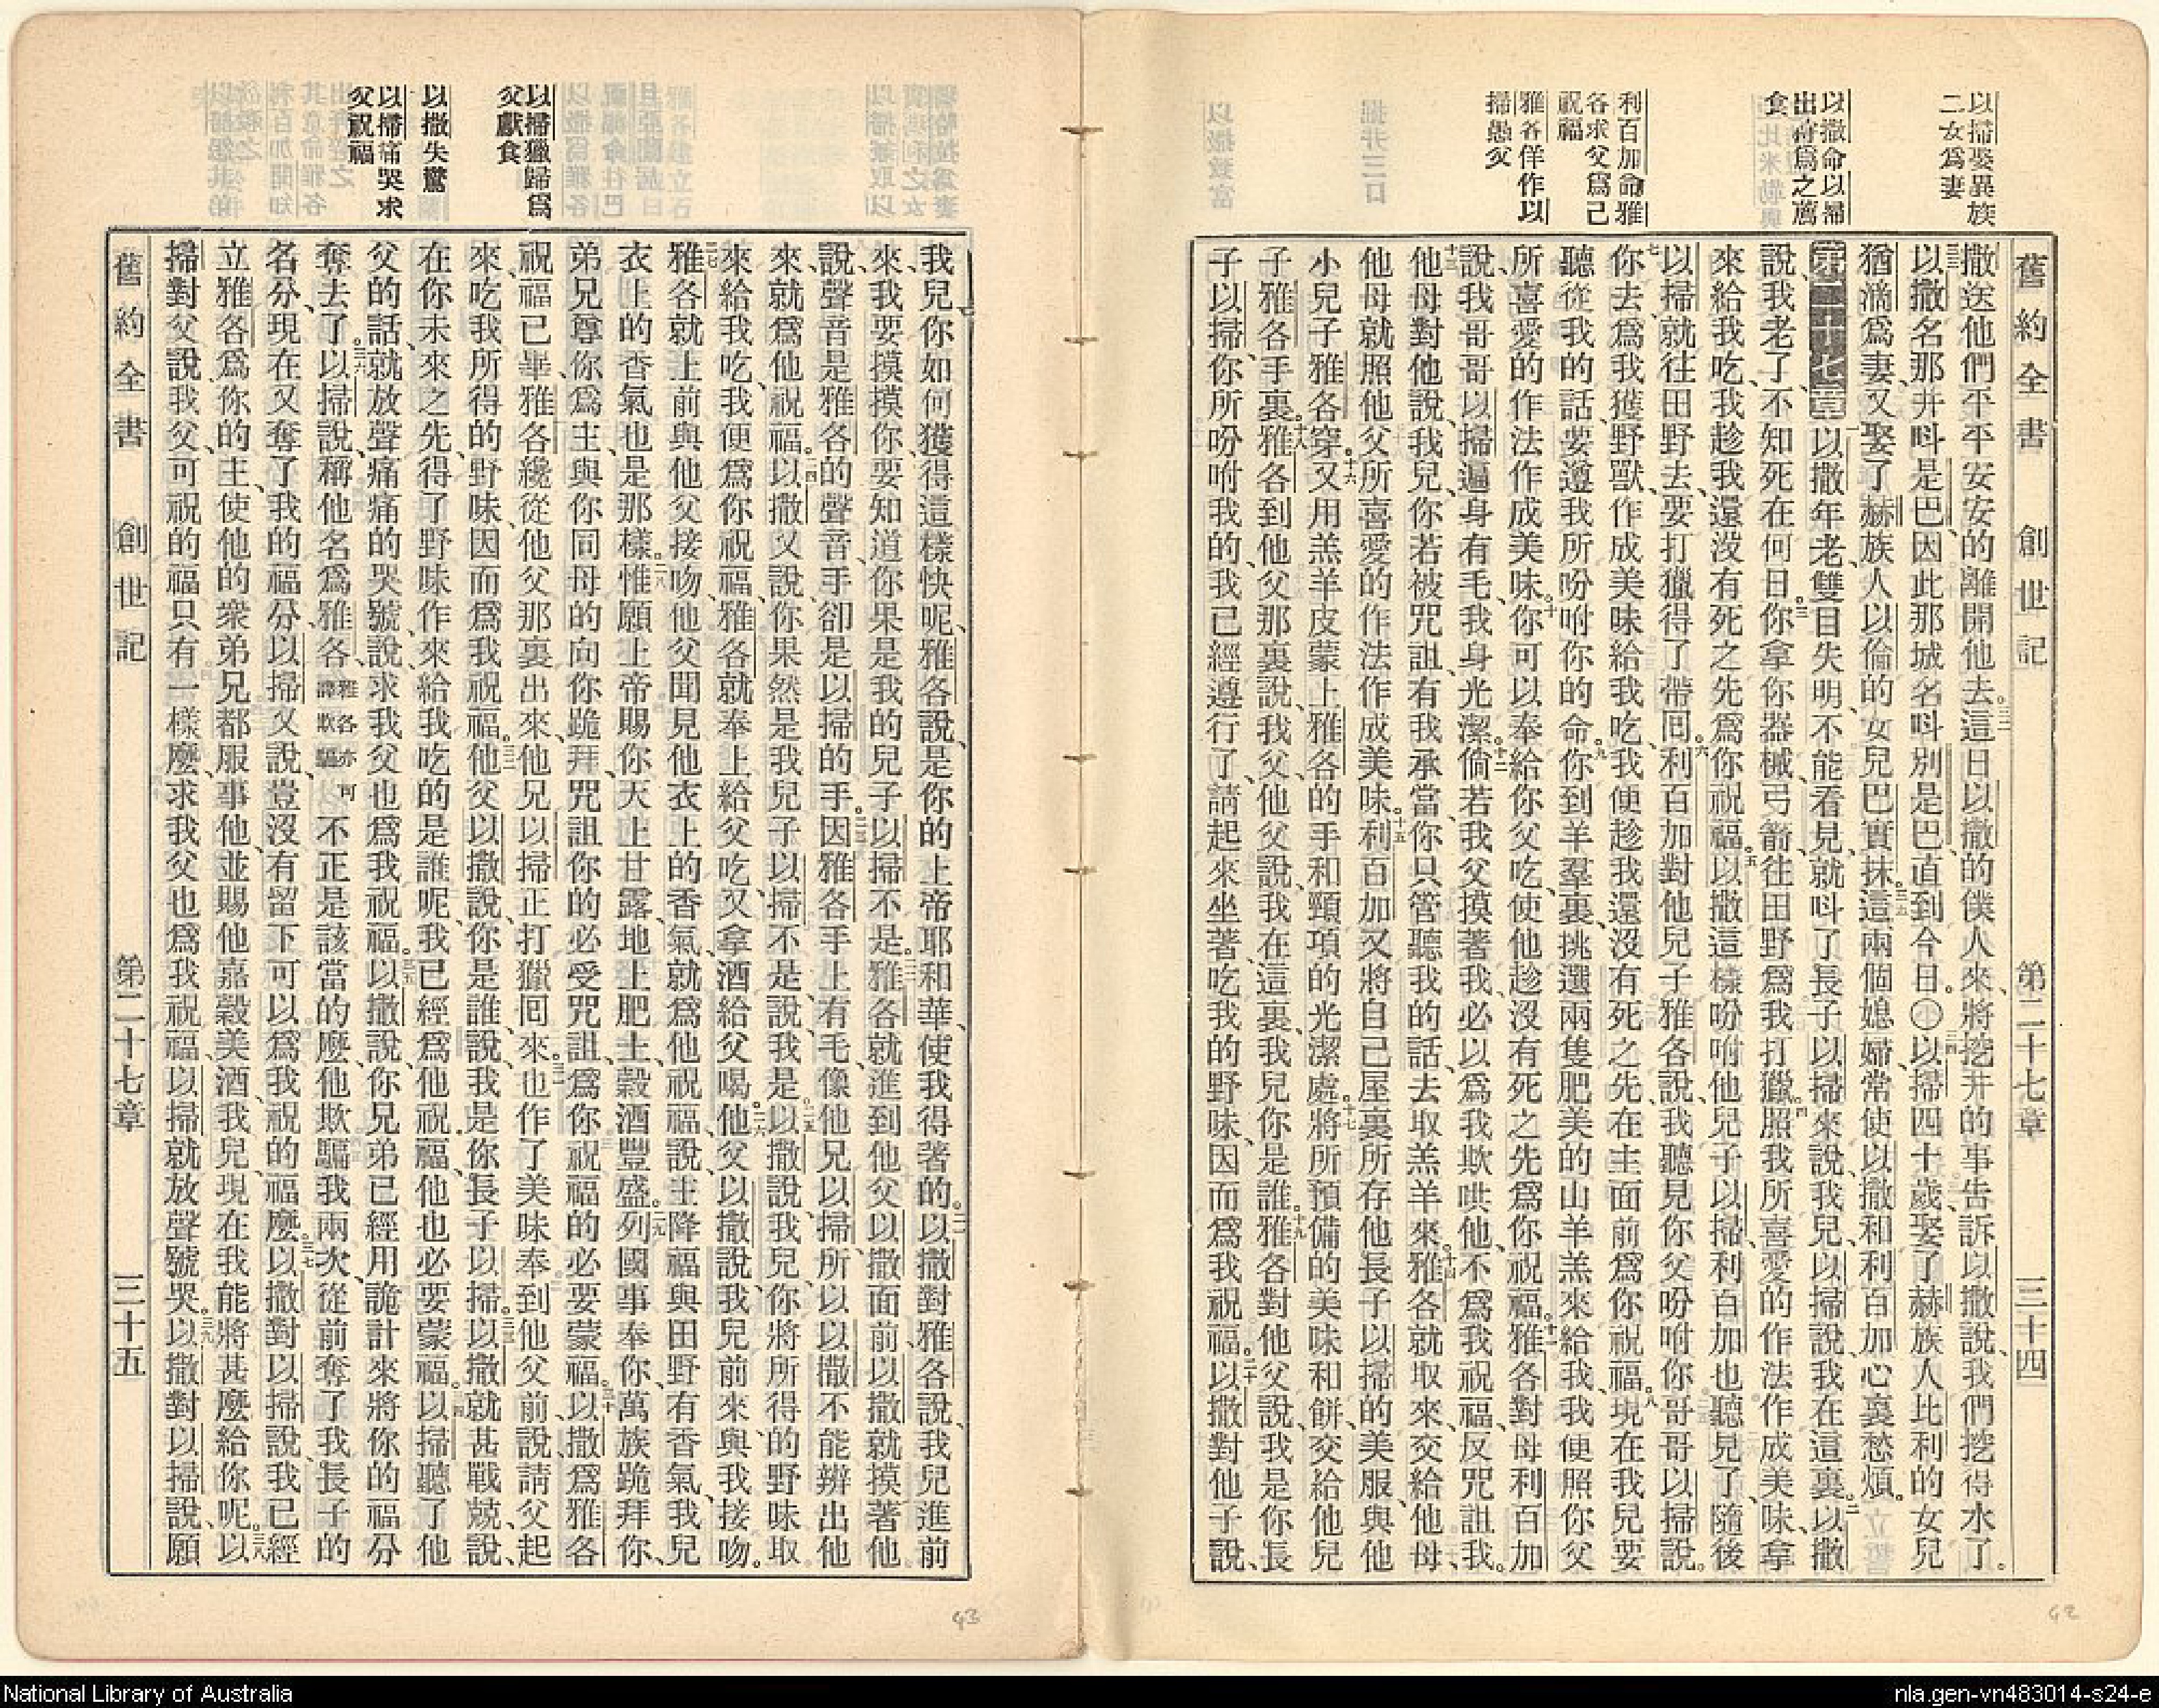 以掃娶異族
二女爲妻
以撒命以掃
出畜爲之薦
食
利百加命雅
各求父爲己
祝福
雅各佯作以
掃愚父
舊約全書 創世記 第二十七章 三十四
撒送他們平平安安的離開他去。三二這日以撒的僕人來、將挖井的事告訴以撒說、我們挖得水了。
三三以撒名那井呌是巴、因此那城名呌別是巴、直到今日。〇三四以掃四十歲、娶了赫族人比利的女兒
猶滴爲妻、又娶了赫族人以倫的女兒巴實抹。三五這兩個媳婦、常使以撒和利百加心裏愁煩。
第二十七章 一以撒年老、雙目失明、不能看見、就呌了長子以掃來、說、我兒、以掃說、我在這裏。二以撒
說、我老了、不知死在何日。三你拿你器械弓箭、往田野爲我打獵。四照我所喜愛的作法、作成美味、拿
來給我吃、我趁我還沒有死之先、爲你祝福。五以撒這樣吩咐他兒子以掃、利百加也聽見了、隨後
以掃就往田野去、要打獵得了帶囘。六利百加對他兒子雅各說、我聽見你父吩咐你哥哥以掃說。
七你去爲我獲野獸、作成美味給我吃、我便趁我還沒有死之先、在主面前爲你祝福。八現在我兒要
聽從我的話、要遵我所吩咐你的命。九你到羊羣裏、挑選兩隻肥美的山羊羔來給我、我便照你父
所喜愛的作法、作成美味。十你可以奉給你父吃、使他趁沒有死之先、爲你祝福。十一雅各對母利百加
說、我哥哥以掃遍身有毛、我身光潔。十二倘若我父摸著我、必以爲我欺哄他、不爲我祝福、反咒詛我。
十三他母對他說、我兒、你若被咒詛、有我承當、你只管聽我的話、去取羔羊來。十四雅各就取來、交給他母、
他母就照他父所喜愛的作法、作成美味。十五利百加又將自己屋裏所存他長子以掃的美服、與他
小兒子雅各穿。十六又用羔羊皮、蒙上雅各的手和頸項的光潔處。十七將所預備的美味和餅、交給他兒
子雅各手裏。十八雅各到他父那裏說、我父、他父說、我在這裏、我兒你是誰。十九雅各對他父說、我是你長
子以掃、你所吩咐我的、我已經遵行了、請起來坐著、吃我的野味、因而爲我祝福。二十以撒對他子說、
以掃獵歸爲
父獻食
以撒失驚
以掃痛哭求
父祝福
我兒你如何獲得這樣快呢、雅各說、是你的上帝耶和華、使我得著的。二一以撒對雅各說、我兒進前
來、我要摸摸你、要知道你果是我的兒子以掃不是。二二雅各就進到他父以撒面前、以撒就摸著他
說、聲音是雅各的聲音、手卻是以掃的手。二三因雅各手上有毛、像他兄以掃、所以以撒不能辨出他
來、就爲他祝福。二四以撒又說、你果然是我兒子以掃不是、說、我是。二五以撒說、我兒、你將所得的野味取
來給我吃、我便爲你祝福、雅各就奉上給父吃、又拿酒給父喝。二六他父以撒說、我兒前來、與我接吻。
二七雅各就上前與他父接吻、他父聞見他衣上的香氣、就爲他祝福、說、主降福與田野有香氣、我兒
衣上的香氣也是那樣。二八惟願上帝賜你天上甘露、地上肥土、穀酒豐盛。二九列國事奉你、萬族跪拜你、
弟兄尊你爲主、與你同母的向你跪拜、咒詛你的必受咒詛、爲你祝福的必要蒙福。三十以撒爲雅各
祝福已畢、雅各纔從他父那裏出來、他兄以掃正打獵囘來。三一也作了美味、奉到他父前、說、請父起
來、吃我所得的野味、因而爲我祝福。三二他父以撒說、你是誰、說、我是你長子以掃。三三以撒就甚戰兢、說、
在你未來之先、得了野味作來給我吃的是誰呢、我已經爲他祝福、他也必要蒙福。三四以掃聽了他
父的話、就放聲痛痛的哭號、說、求我父也爲我祝福。三五以撒說、你兄弟已經用詭計來將你的福分
奪去了。三六以掃說、稱他名爲雅各、雅各亦可譯欺騙不正是該當的麼、他欺騙我兩次、從前奪了我長子的
名分、現在又奪了我的福分、以掃父說、豈沒有留下可以爲我祝的福麼。三七以撒對以掃說、我已經
立雅各爲你的主、使他的衆弟兄都服事他、並賜他嘉穀美酒、我兒、現在我能將甚麼給你呢。三八以
掃對父說、我父、可祝的福只有一樣麼、求我父也爲我祝福、以掃就放聲號哭。三九以撒對以掃說、願
舊約全書 創世記 第二十七章 三十五
43
42
National Library of Australia
nla.gen-vn483014-s24-e